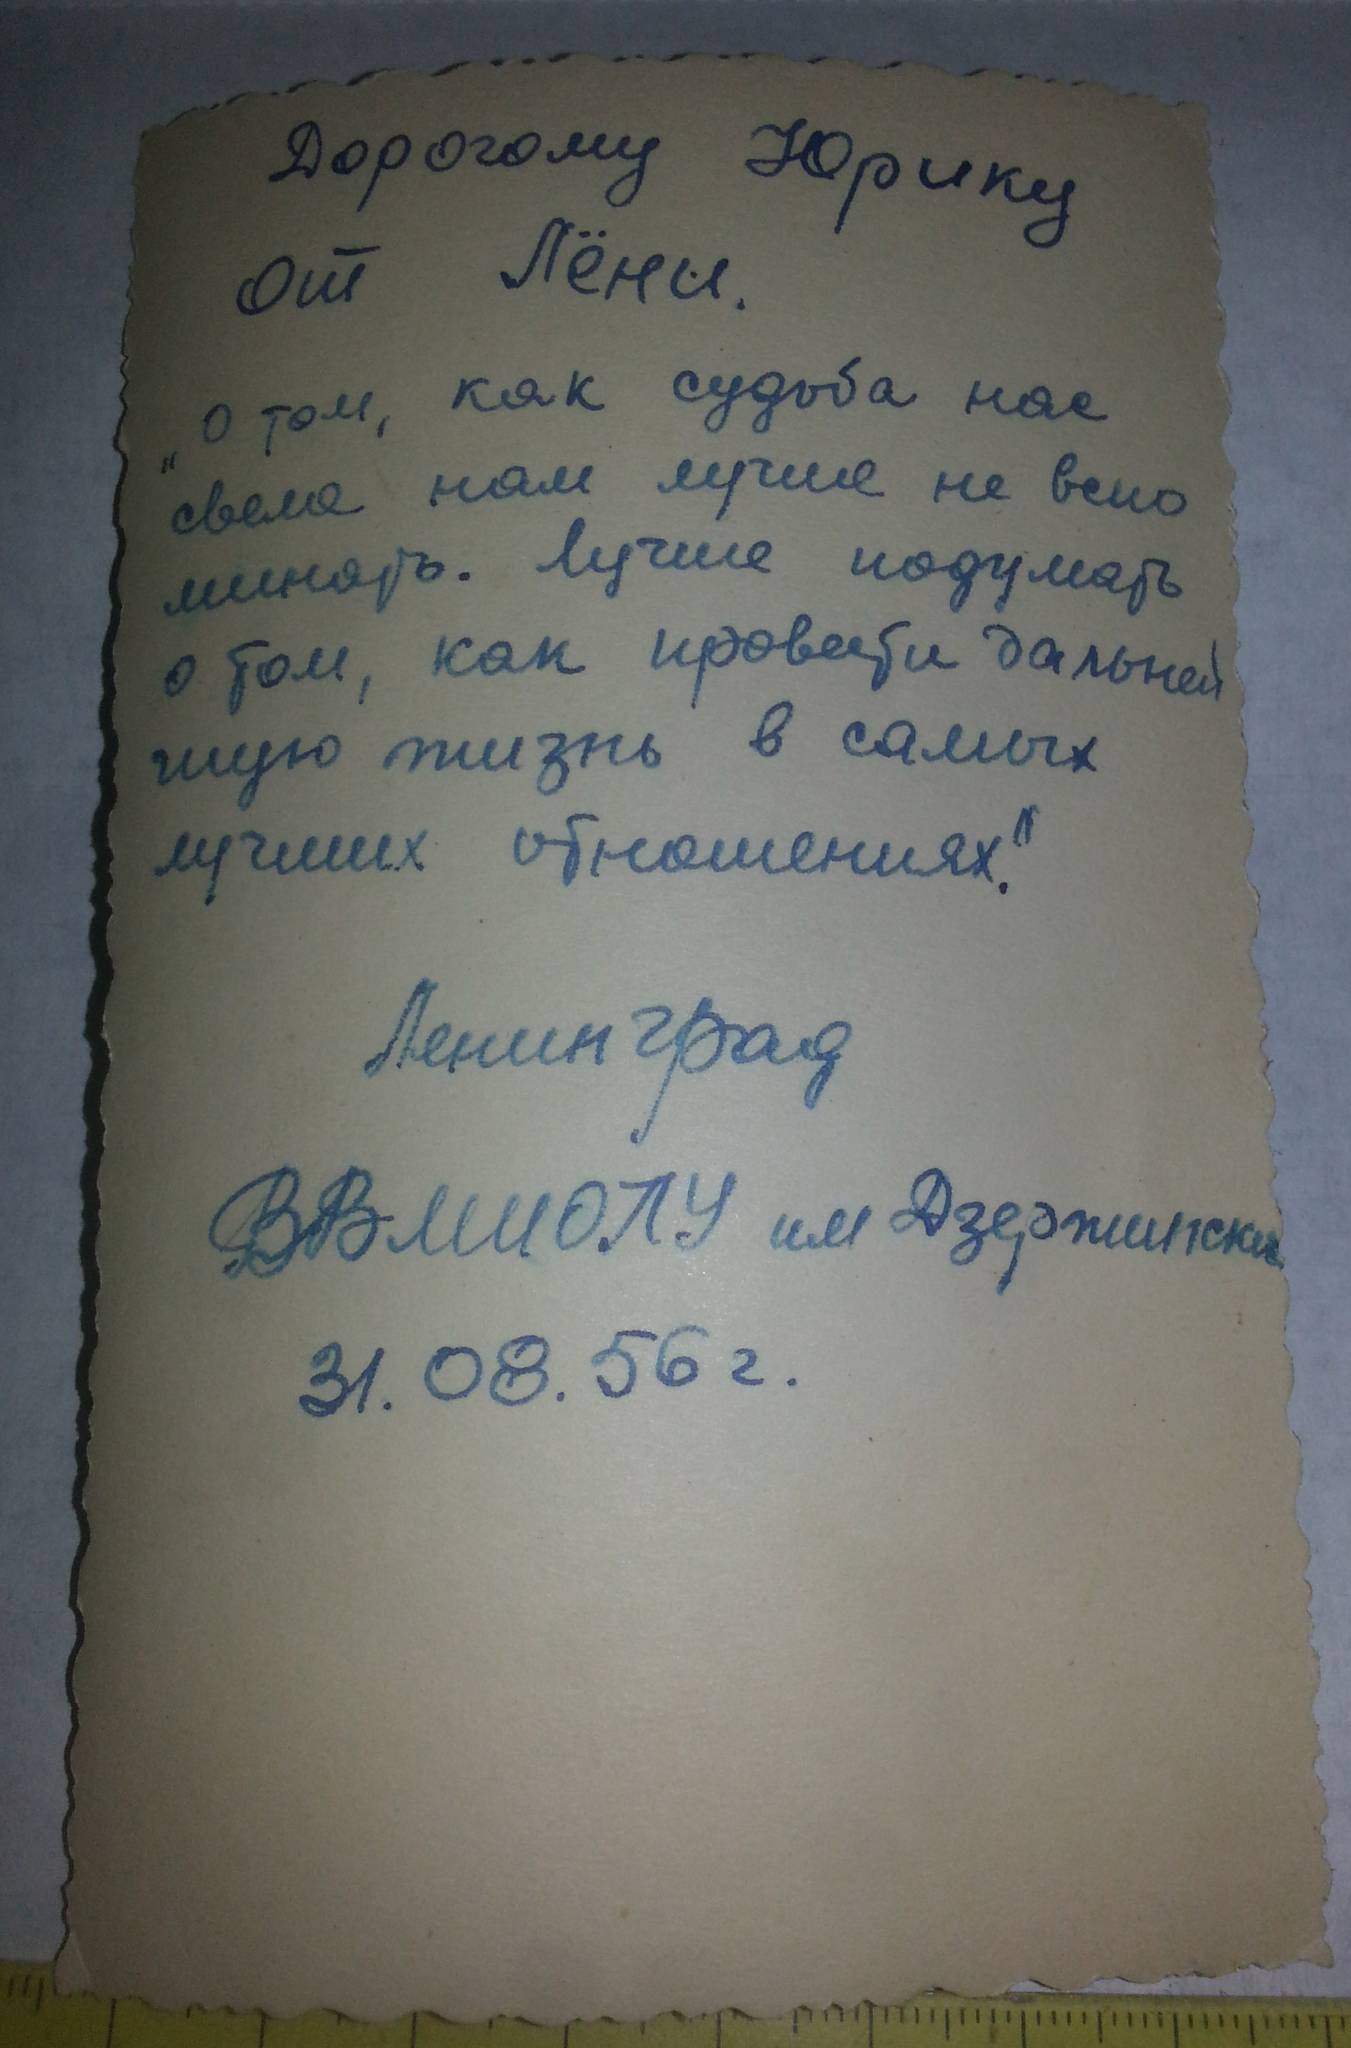 Дорогому Юрику
от Лёни.
„О том, как судьба нас
свела нам лучше не вспо
минать. Лучше подумать
о том, как провести дальней
шую жизнь в самых
лучших отношениях."
Ленинград
ВВМИОЛУ им Дзержински
31.08.56 г.